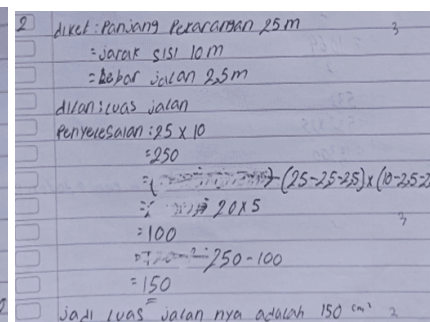 2 diket : Panjang Pekarangan 25 m 3
= jarak sisi 10 m
= Lebar jalan 2,5 m
ditan : luas jalan
Penyelesaian : 25 x 10
= 250
= - (25-2,5-2,5) x (10-2,5-2
= 20 x 5
= 100 3
= 250 - 100
= 150
jadi luas jalan nya adalah 150 cm² 2